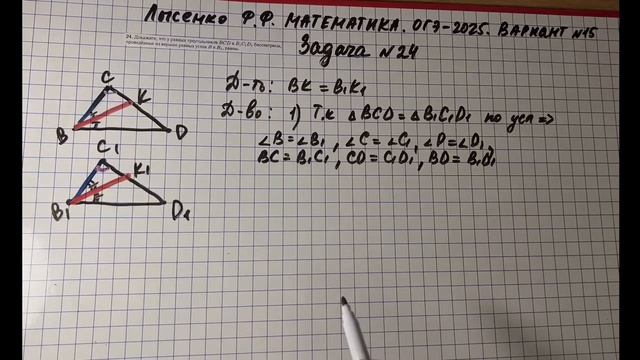 Лысенко Ф.Ф. МАТЕМАТИКА. ОГЭ-2025. ВАРИАНТ №15
24. Докажите, что у равных треугольников BCD и B₁C₁D₁ биссектрисы,
проведённые из вершин равных углов B и B₁, равны.
ЗАДАЧА №24
Д-ть: BK = B₁K₁
Д-во: 1) Т.к. △BCD = △B₁C₁D₁ по усл ⇒
∠B = ∠B₁, ∠C = ∠C₁, ∠D = ∠D₁,
BC = B₁C₁, CD = C₁D₁, BD = B₁D₁
C
K
B
D
C₁
K₁
B₁
D₁